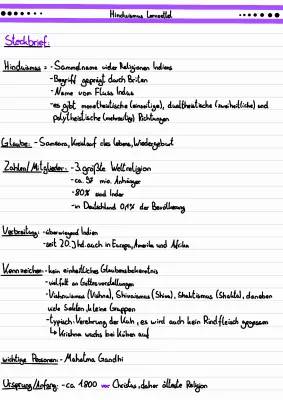 Hinduismus Lernzettel
Steckbrief:
Hinduismus = - Sammelname vieler Religionen Indiens
- Begriff geprägt durch Briten
- Name vom Fluss Indus
- es gibt monotheistische (eingottige), dualtheistische (zweiheitliche) und
polytheistische (mehrgottige) Richtungen
Glaube: - Samsara, Kreislauf des Lebens, Wiedergeburt
Zahlen/Mitglieder: - 3. größte Weltreligion
- ca. mio. Anhänger
- 80% sind Inder
- in Deutschland 0,1% der Bevölkerung
Verbreitung: - überwiegend Indien
- seit 20. Jhd. auch in Europa, Amerika und Afrika
Kennzeichen: - kein einheitliches Glaubensbekenntnis
- vielfalt an Gottesvorstellungen
- Vishnuismus (Vishnu), Shivaismus (Shiva), Shaktismus (Shakti), daneben
viele Sekten, kleine Gruppen
- typisch: Verehrung der Kuh, es wird auch kein Rindfleisch gegessen
↳ Krishna wuchs bei Kühen auf
wichtige Personen: - Mahatma Gandhi
Ursprung/Anfang: - ca. 1800 vor Christus, daher älteste Religion